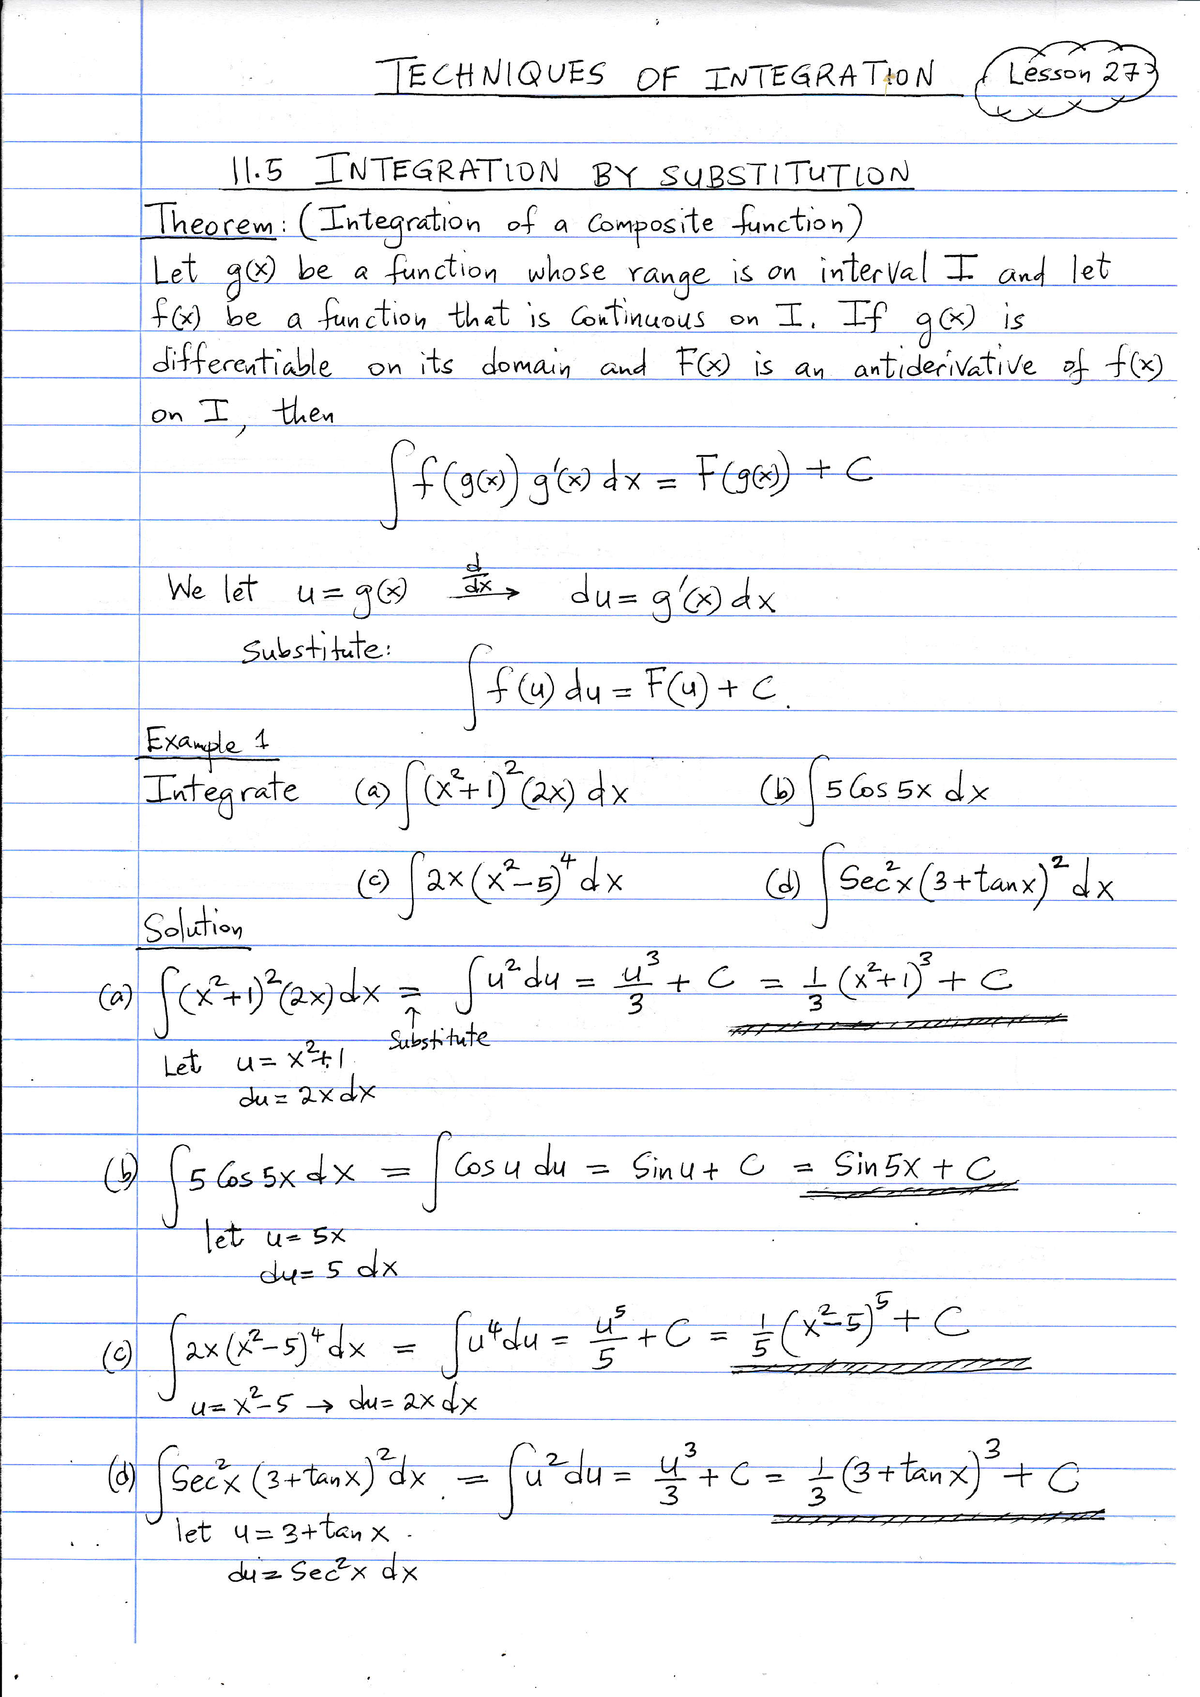 TECHNIQUES OF INTEGRATION
Lesson 273
11.5 INTEGRATION BY SUBSTITUTION
Theorem: (Integration of a Composite function)
Let g(x) be a function whose range is on interval I and let
f(x) be a function that is Continuous on I. If g(x) is
differentiable on its domain and F(x) is an antiderivative of f(x)
on I, then
∫f(g(x)) g'(x) dx = F(g(x)) + C
We let u = g(x) d/dx → du = g'(x) dx
Substitute:
∫f(u) du = F(u) + C.
Example 1
Integrate (a) ∫(x²+1)²(2x) dx (b) ∫5 Cos 5x dx
(c) ∫2x(x²-5)⁴ dx (d) ∫Sec²x (3+tanx)² dx
Solution
(a) ∫(x²+1)²(2x) dx = ∫u² du = u³/3 + C = 1/3 (x²+1)³ + C
↑
Substitute
Let u = x²+1
du = 2x dx
(b) ∫5 Cos 5x dx = ∫Cos u du = Sin u + C = Sin 5x + C
let u = 5x
du = 5 dx
(c) ∫2x(x²-5)⁴ dx = ∫u⁴ du = u⁵/5 + C = 1/5 (x²-5)⁵ + C
u = x²-5 → du = 2x dx
(d) ∫Sec²x (3+tanx)² dx = ∫u² du = u³/3 + C = 1/3 (3+tan x)³ + C
let u = 3+tan x
du = Sec²x dx